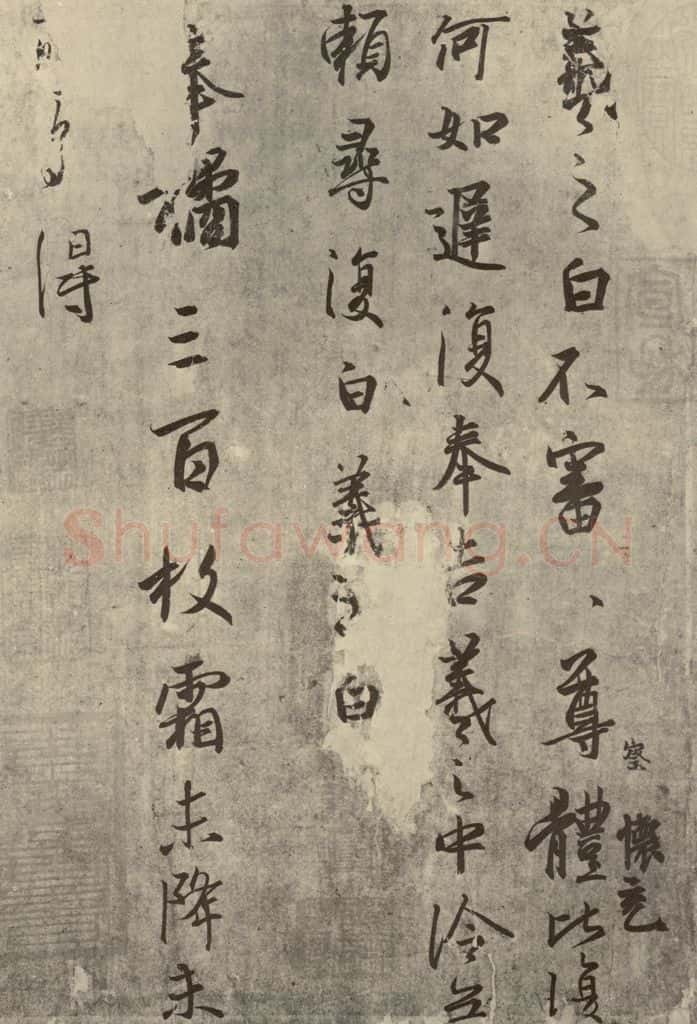 察 懷充
羲之白不審、尊體比復
何如遲復奉告羲之中冷無
賴尋復白羲之白
奉橘三百枚霜未降未
可多得
Shufawang.CN